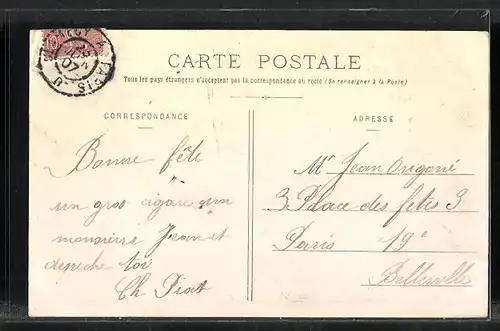 CARTE POSTALE
Tous les pays étrangers n'acceptent pas la correspondance au recto (Se renseigner à la Poste)
CORRESPONDANCE
ADRESSE
Bonne fête
un gros cigare
monsieur Jean et
depeche toi
Ch Piat
Mr Jean Origoné
3 Place des fetes 3
Paris 19e
Belleville
PARIS
07